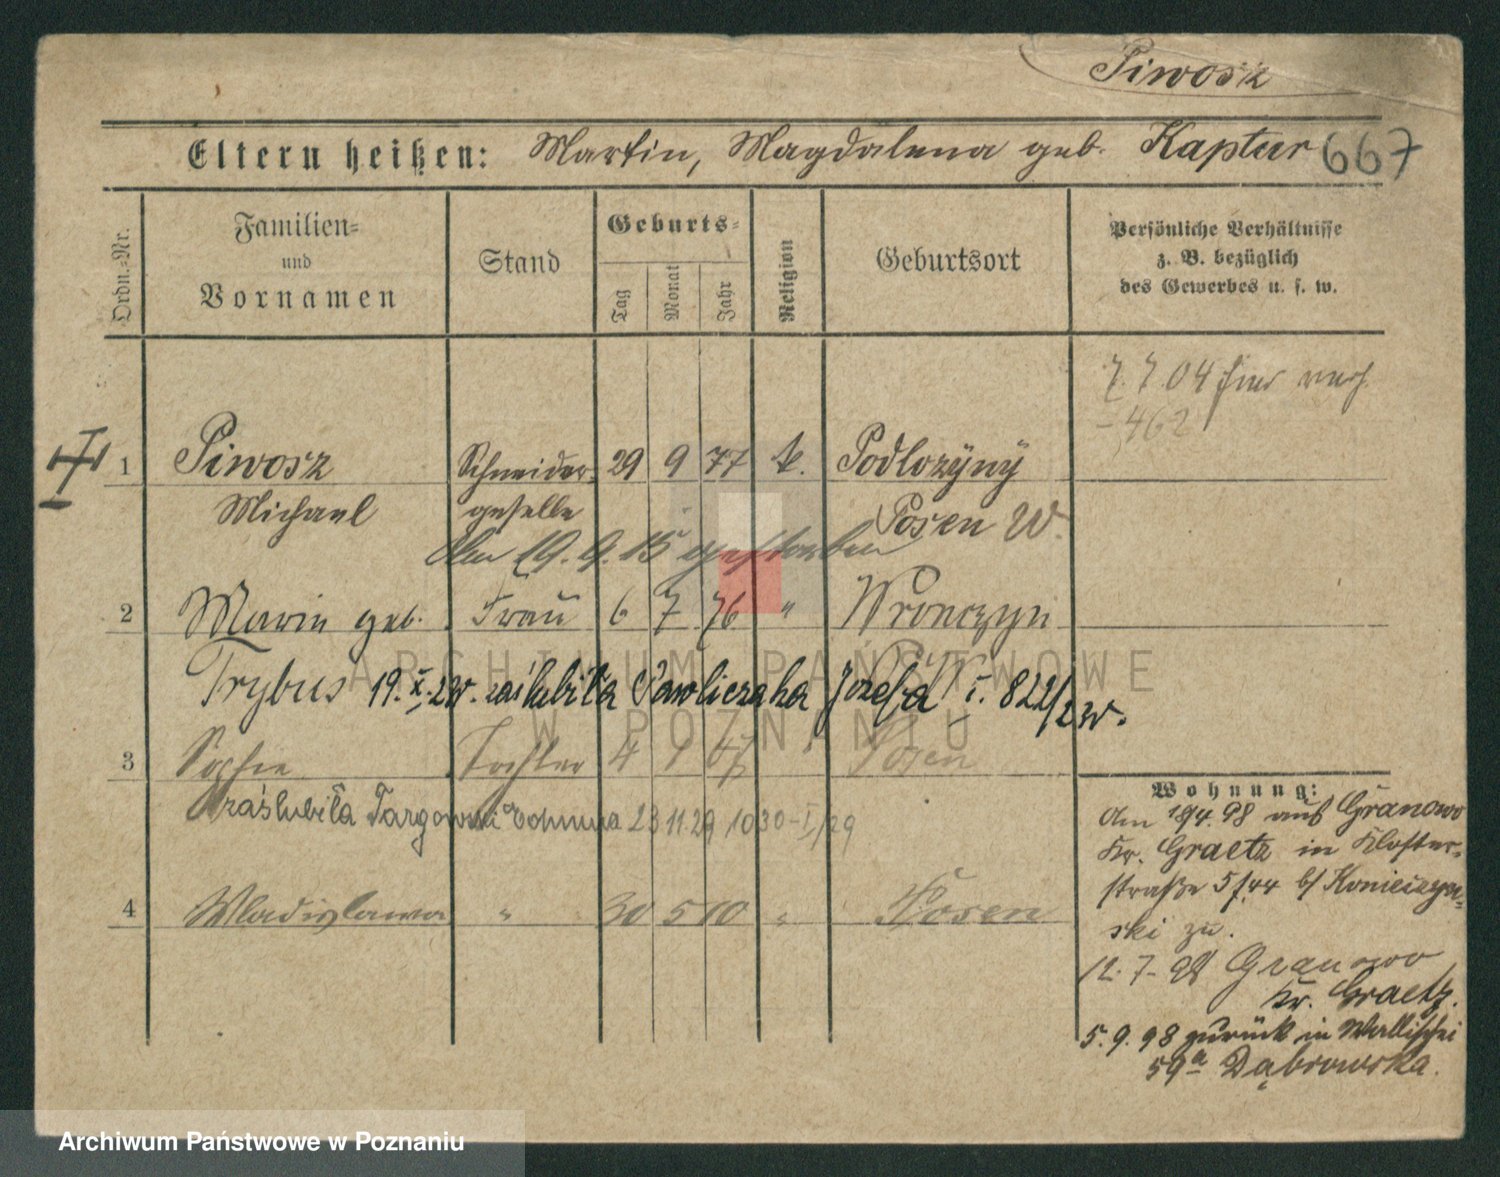 Piwosz
Eltern heißen: Martin, Magdalena geb. Kaptur 667
Ordn.-Nr.
Familien-
und
Vornamen
Stand
Geburts-
Tag
Monat
Jahr
Religion
Geburtsort
Persönliche Verhältnisse
z. B. bezüglich
des Gewerbes u. s. w.
7. 7. 04 hier
462
1 Piwosz Schneider- 29 9 77 k. Podlozyny
Michael geselle Posen W.
Am 19. 9. 15 gestorben
2 Marie geb. Frau 6 7 76 " Wronczyn
Trybus 19. X. 2 zaślubiła Pawliczaka Józefa I. 822/2
3 Sophie Tochter 4 1 07 Posen
zaślubiła Targowski 23 11 29 1030-I/29
4 Wladislawa " 30 5 10 " Posen
Wohnung:
Am 18/4. 98 aus Granowo
Kr. Graetz in Kloster-
straße 5 b/ Konieczyn-
ski zu.
12. 7. 98 Granowo
Kr. Graetz.
5. 9. 98 zurück in Wallischei
59a Dąbrowska.
ARCHIWUM PAŃSTWOWE
W POZNANIU
Archiwum Państwowe w Poznaniu